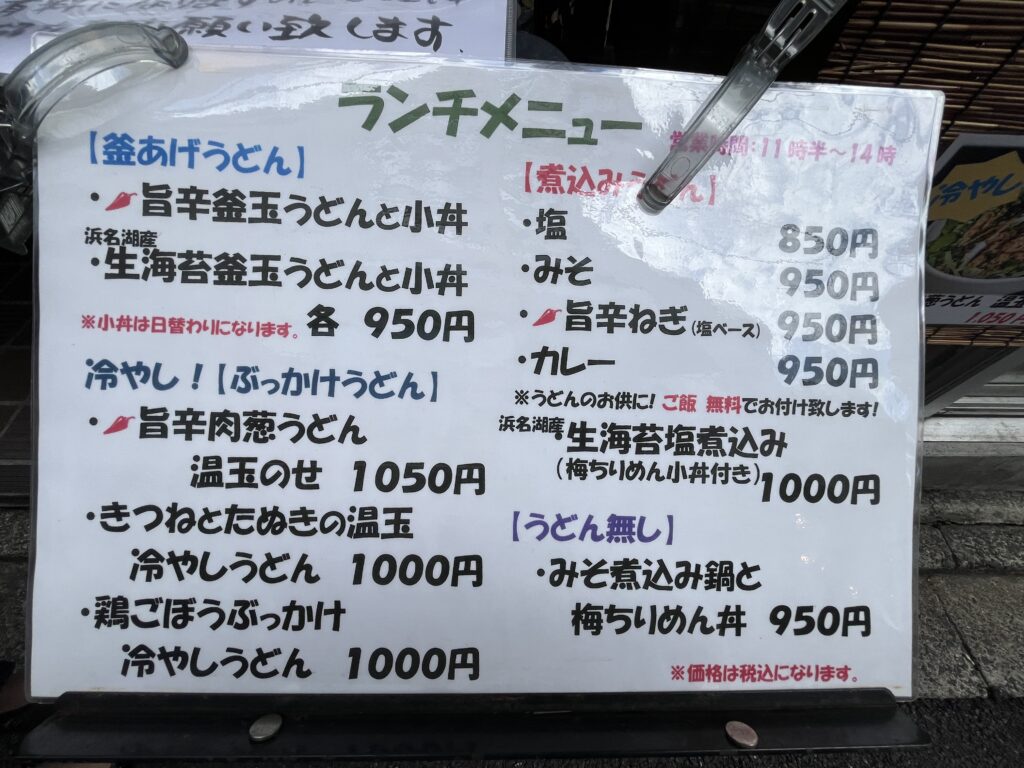 お願い致します
ランチメニュー
営業時間:11時半～14時
【釜あげうどん】
・旨辛釜玉うどんと小丼
浜名湖産
・生海苔釜玉うどんと小丼
※小丼は日替わりになります。 各 950円
冷やし!【ぶっかけうどん】
・旨辛肉葱うどん
温玉のせ 1050円
・きつねとたぬきの温玉
冷やしうどん 1000円
・鶏ごぼうぶっかけ
冷やしうどん 1000円
【煮込みうどん】
・塩 850円
・みそ 950円
・旨辛ねぎ(塩ベース) 950円
・カレー 950円
※うどんのお供に!ご飯 無料でお付け致します!
浜名湖産
・生海苔塩煮込み
(梅ちりめん小丼付き) 1000円
【うどん無し】
・みそ煮込み鍋と
梅ちりめん丼 950円
※価格は税込になります。
冷やし
うどん 温
1,050円